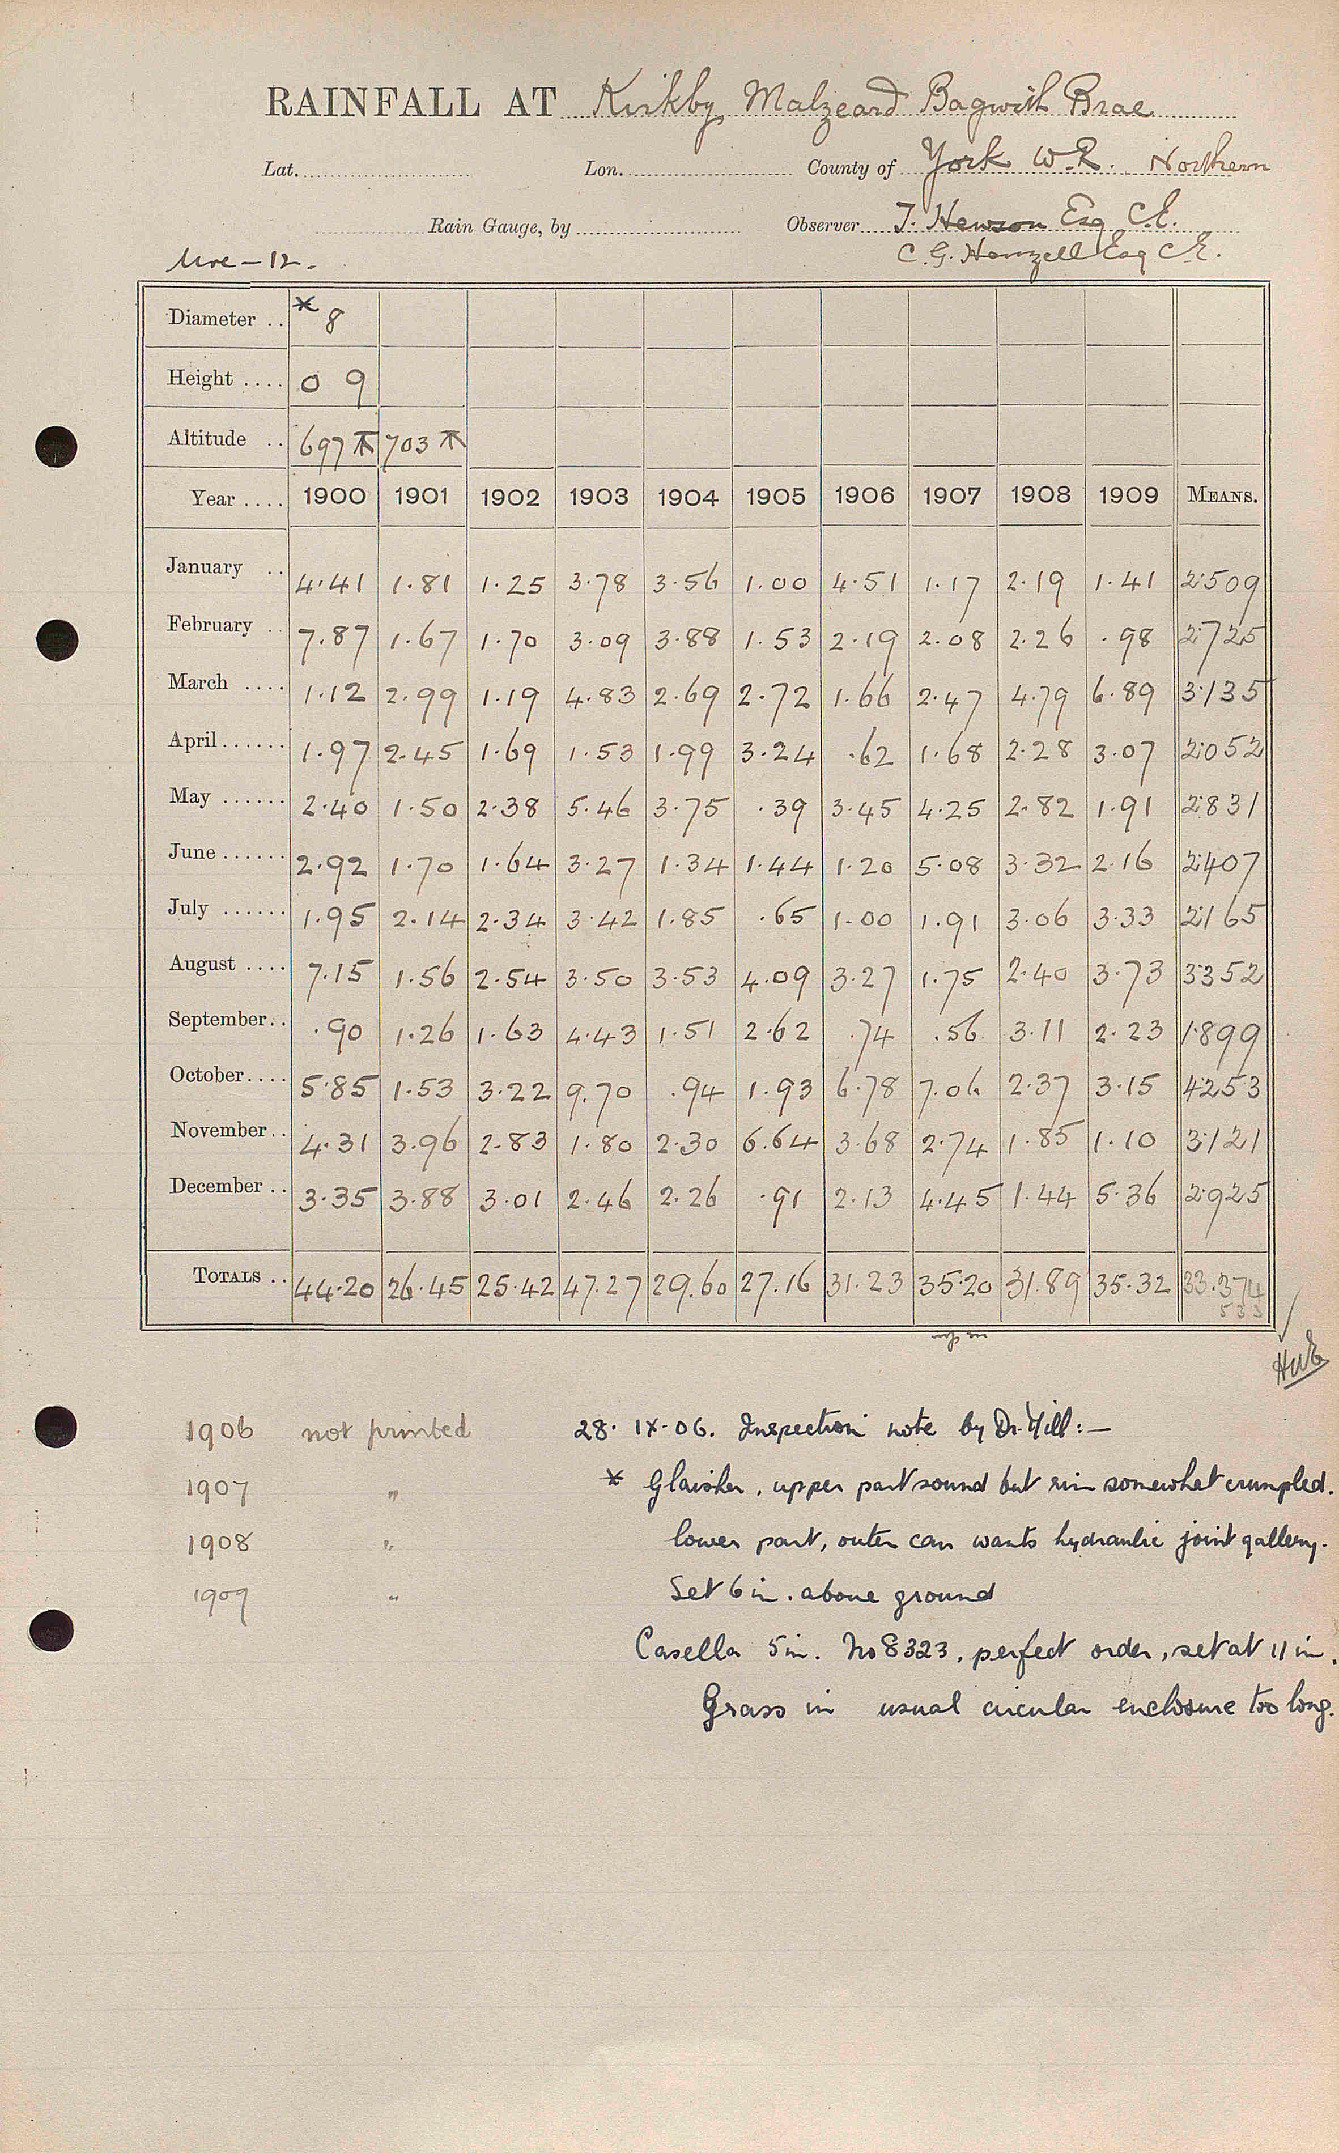 RAINFALL AT Kirkby Malzeard Bagwith Brae
Lat. Lon. County of York W.R. Northern
Rain Gauge, by Observer T. Hewson Esq C.E.
Ure - 12. C. G. Henzell Esq C.E.
Diameter .. * 8
Height .... 0 9
Altitude .. 697 703
Year .... 1900 1901 1902 1903 1904 1905 1906 1907 1908 1909 MEANS.
January .. 4.41 1.81 1.25 3.78 3.56 1.00 4.51 1.17 2.19 1.41 2.509
February .. 7.87 1.67 1.70 3.09 3.88 1.53 2.19 2.08 2.26 .98 2.725
March .... 1.12 2.99 1.19 4.83 2.69 2.72 1.66 2.47 4.79 6.89 3.135
April ...... 1.97 2.45 1.69 1.53 1.99 3.24 .62 1.68 2.28 3.07 2.052
May ...... 2.40 1.50 2.38 5.46 3.75 .39 3.45 4.25 2.82 1.91 2.831
June ...... 2.92 1.70 1.64 3.27 1.34 1.44 1.20 5.08 3.32 2.16 2.407
July ...... 1.95 2.14 2.34 3.42 1.85 .65 1.00 1.91 3.06 3.33 2.165
August .... 7.15 1.56 2.54 3.50 3.53 4.09 3.27 1.75 2.40 3.73 3.352
September.. .90 1.26 1.63 4.43 1.51 2.62 .74 .56 3.11 2.23 1.899
October.... 5.85 1.53 3.22 9.70 .94 1.93 6.78 7.06 2.37 3.15 4.253
November.. 4.31 3.96 2.83 1.80 2.30 6.64 3.68 2.74 1.85 1.10 3.121
December .. 3.35 3.88 3.01 2.46 2.26 .91 2.13 4.45 1.44 5.36 2.925
TOTALS .. 44.20 26.45 25.42 47.27 29.60 27.16 31.23 35.20 31.89 35.32 33.374
533
1906 not printed 28. IX. 06. Inspection note by Dr. Mill:—
1907 " * Glaisher, upper part sound but rim somewhat crumpled.
1908 " lower part, outer can wants hydraulic joint gallery.
1909 " Set 6 in. above ground
Casella 5 in. No 8323, perfect order, set at 11 in.
Grass in usual circular enclosure too long.